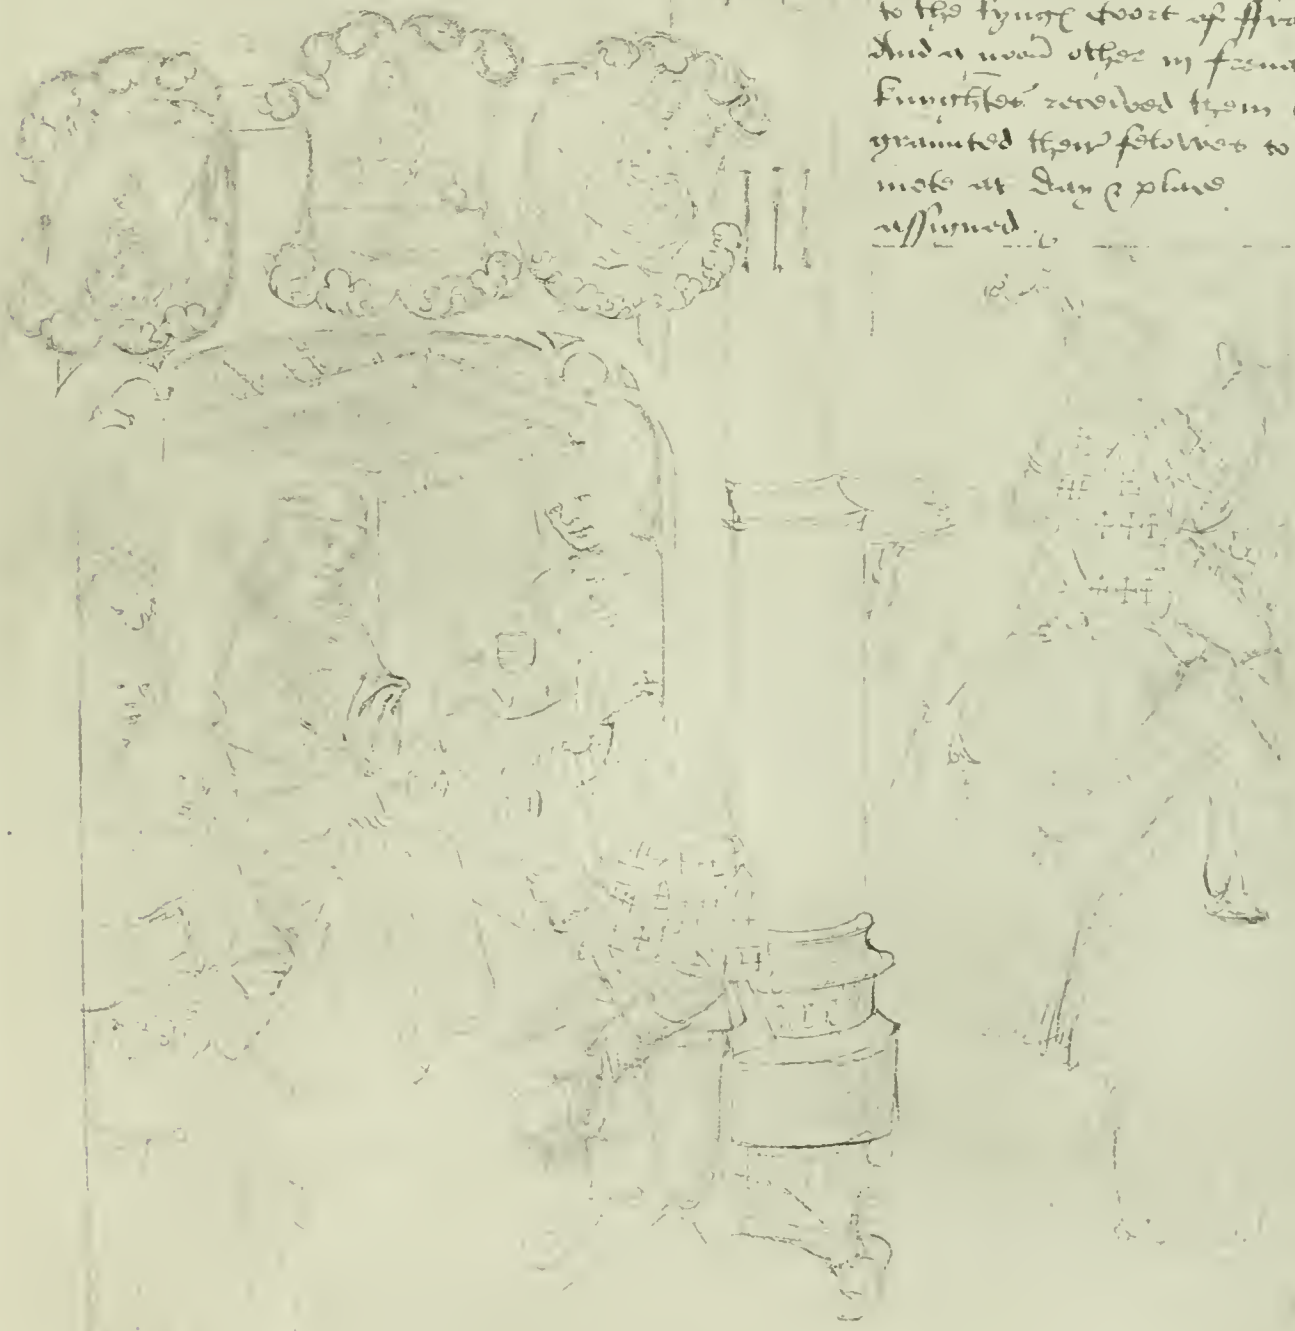 to the kyngꝭ Coort of ffra
And a noon other in frenc
knyghtes received them
graunted their felowes to
mete at day & place
assigned.